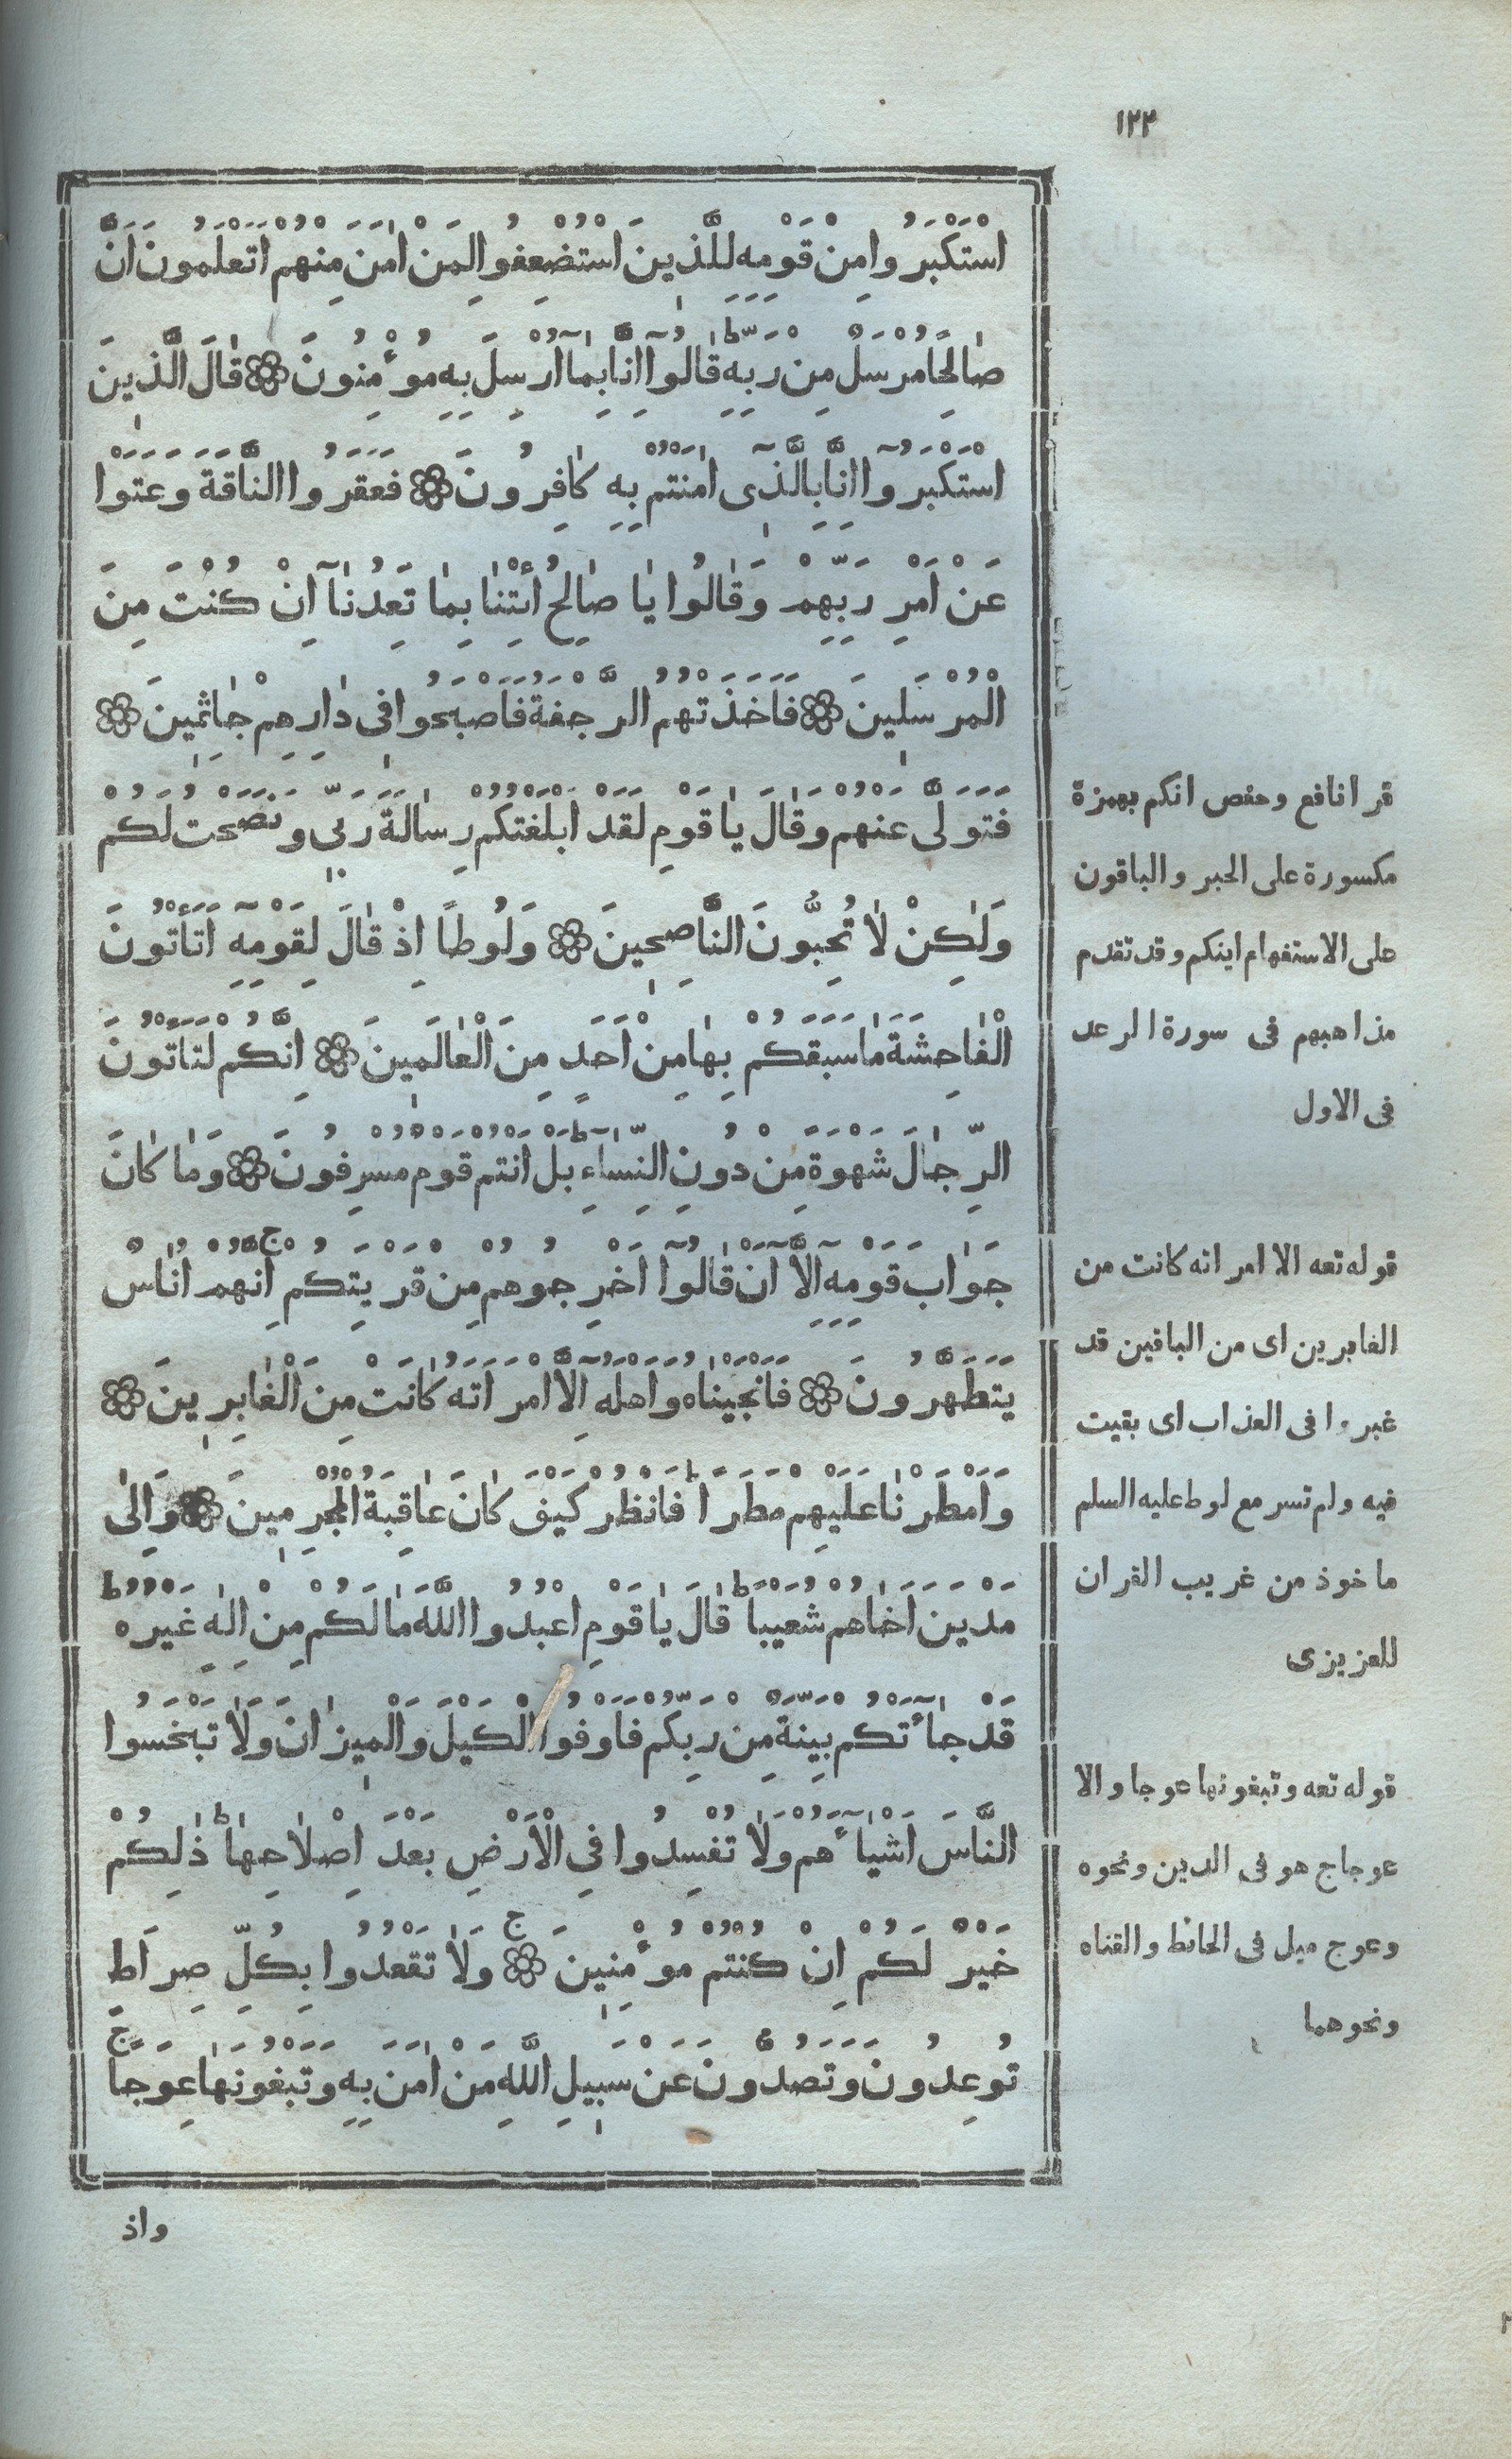 ١٢٢
اسْتَكْبَرُوا مِنْ قَوْمِهِ لِلَّذِينَ اسْتُضْعِفُوا لِمَنْ اٰمَنَ مِنْهُمْ اَتَعْلَمُونَ اَنَّ
صٰالِحًا مُرْسَلٌ مِنْ رَبِّهِ ط قٰالُوٓا اِنّٰا بِمٰٓا اُرْسِلَ بِهِ مُؤْمِنُونَ ۞ قٰالَ الَّذِينَ
اسْتَكْبَرُوٓا اِنّٰا بِالَّذِٓى اٰمَنْتُمْ بِهِ كٰافِرُونَ ۞ فَعَقَرُوا النّٰاقَةَ وَعَتَوْا
عَنْ اَمْرِ رَبِّهِمْ وَقٰالُوا يٰا صٰالِحُ ائْتِنٰا بِمٰا تَعِدُنٰٓا اِنْ كُنْتَ مِنَ
الْمُرْسَلِينَ ۞ فَاَخَذَتْهُمُ الرَّجْفَةُ فَاَصْبَحُوا فِى دٰارِهِمْ جٰاثِمِينَ ۞
فَتَوَلّٰى عَنْهُمْ وَقٰالَ يٰا قَوْمِ لَقَدْ اَبْلَغْتُكُمْ رِسٰالَةَ رَبِّى وَنَصَحْتُ لَكُمْ
وَلٰكِنْ لٰا تُحِبُّونَ النّٰاصِحِينَ ۞ وَلُوطًا اِذْ قٰالَ لِقَوْمِهِٓ اَتَأْتُونَ
الْفٰاحِشَةَ مٰا سَبَقَكُمْ بِهٰا مِنْ اَحَدٍ مِنَ الْعٰالَمِينَ ۞ اِنَّكُمْ لَتَأْتُونَ
الرِّجٰالَ شَهْوَةً مِنْ دُونِ النِّسٰٓاءِ ط بَلْ اَنْتُمْ قَوْمٌ مُسْرِفُونَ ۞ وَمٰا كٰانَ
جَوٰابَ قَوْمِهِٓ اِلَّٓا اَنْ قٰالُوٓا اَخْرِجُوهُمْ مِنْ قَرْيَتِكُمْ ج اِنَّهُمْ اُنٰاسٌ
يَتَطَهَّرُونَ ۞ فَاَنْجَيْنٰاهُ وَاَهْلَهُٓ اِلَّا امْرَاَتَهُ كٰانَتْ مِنَ الْغٰابِرِينَ ۞
وَاَمْطَرْنٰا عَلَيْهِمْ مَطَرًا ط فَانْظُرْ كَيْفَ كٰانَ عٰاقِبَةُ الْمُجْرِمِينَ ۞ وَاِلٰى
مَدْيَنَ اَخٰاهُمْ شُعَيْبًا ط قٰالَ يٰا قَوْمِ اعْبُدُوا اللّٰهَ مٰا لَكُمْ مِنْ اِلٰهٍ غَيْرُهُ ط
قَدْ جٰٓاءَتْكُمْ بَيِّنَةٌ مِنْ رَبِّكُمْ فَاَوْفُوا الْكَيْلَ وَالْمِيزٰانَ وَلٰا تَبْخَسُوا
النّٰاسَ اَشْيٰٓاءَهُمْ وَلٰا تُفْسِدُوا فِى الْاَرْضِ بَعْدَ اِصْلٰاحِهٰا ط ذٰلِكُمْ
خَيْرٌ لَكُمْ اِنْ كُنْتُمْ مُؤْمِنِينَ ج ۞ وَلٰا تَقْعُدُوا بِكُلِّ صِرٰاطٍ
تُوعِدُونَ وَتَصُدُّونَ عَنْ سَبِيلِ اللّٰهِ مَنْ اٰمَنَ بِهِ وَتَبْغُونَهٰا عِوَجًا ج
واذ
قرا نافع وحفص انكم بهمزة
مكسورة على الخبر والباقون
على الاستفهام اينكم وقد تقدم
مذاهبهم فى سورة الرعد
فى الاول
قوله تعه الا امراته كانت من
الغابرين اى من الباقين قد
غبروا فى العذاب اى بقيت
فيه ولم تسر مع لوط عليه السلم
ماخوذ من غريب القران
للعزيزى
قوله تعه وتبغونها عوجا والا
عوجاج هو فى الدين ونحوه
وعوج ميل فى الحائط والقناه
ونحوهما